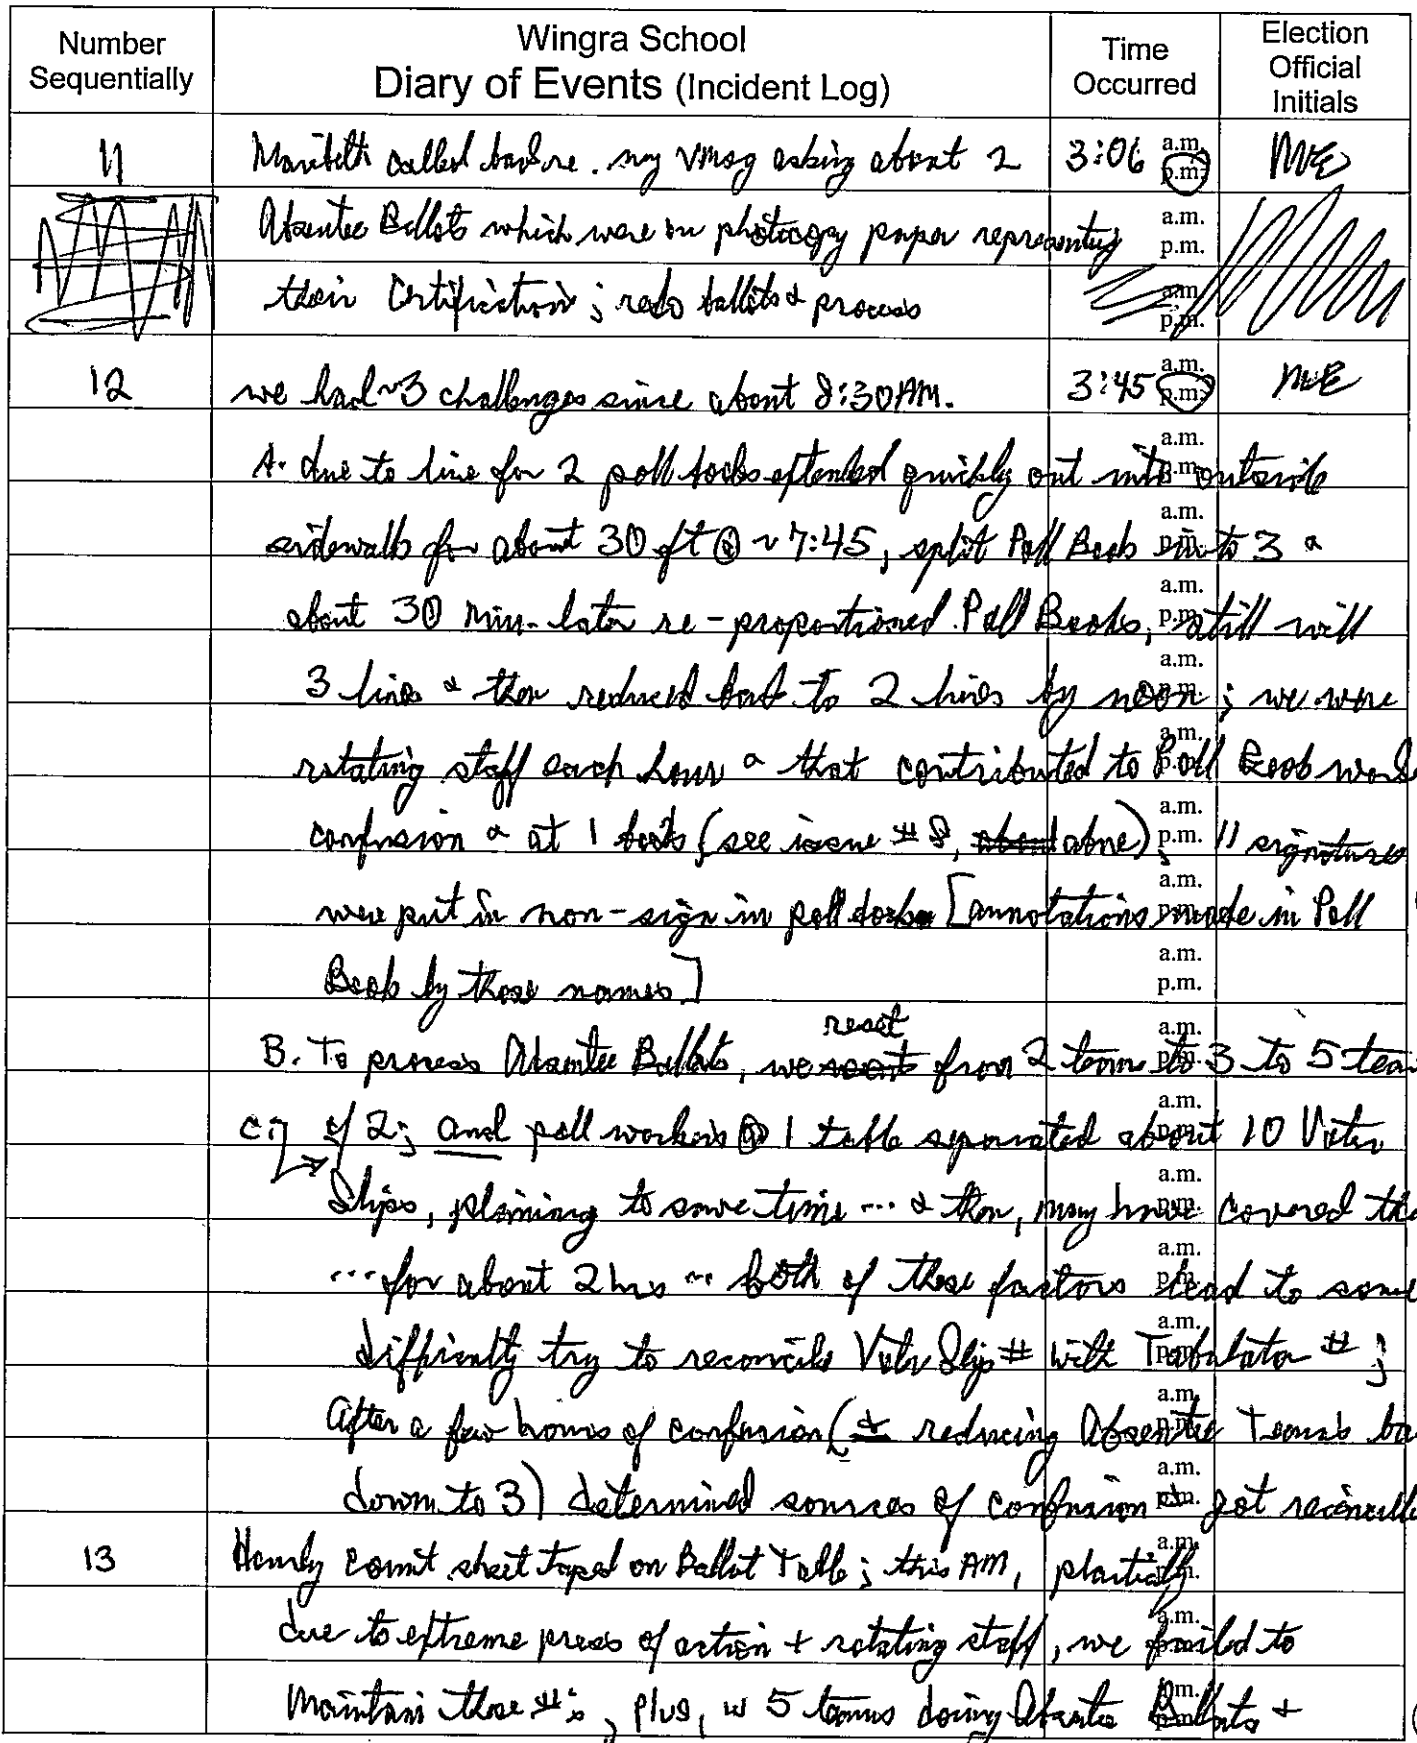 Number Sequentially
Wingra School
Diary of Events (Incident Log)
Time Occurred
Election Official Initials
11 Maribeth called back re. my vmsg asking about 2 3:06 a.m. p.m. MVE
Absentee Ballots which were on photocopy paper representing a.m. p.m.
their Certification; redo ballots & process a.m. p.m.
12 we had ~3 challenges since about 8:30AM. 3:45 a.m. p.m. MVE
A. due to line for 2 poll books extended quickly out into outside a.m. p.m.
sidewalk for about 30 ft @ ~7:45, split Poll Book into 3 & a.m. p.m.
about 30 min. later re-proportioned Poll Books, still will a.m. p.m.
3 lines & then reduced back to 2 lines by noon; we were a.m. p.m.
rotating staff each hour & that contributed to Poll Book a.m. p.m.
confusion & at 1 book (see issue #8, above), 11 signatures a.m. p.m.
were put in non-sign in poll book [annotations made in Poll a.m. p.m.
Book by those names] a.m. p.m.
reset
B. To process Absentee Ballots, we from 2 teams to 3 to 5 a.m. p.m.
C. of 2; and poll workers @ 1 table separated about 10 Voter a.m. p.m.
Slips, planning to save time ... & then, may have covered a.m. p.m.
... for about 2 hrs ... both of these factors lead to some a.m. p.m.
difficulty try to reconcile Voter Slip # with Tabulator #; a.m. p.m.
After a few hours of confusion (& reducing Absentee Teams a.m. p.m.
down to 3) determined sources of confusion & got a.m. p.m.
13 Hourly count sheet taped on Ballot Table; this AM, a.m. p.m.
due to extreme press of action + rotating staff, we failed to a.m. p.m.
Maintain those #'s, plus, w 5 teams doing Absentee Ballots + a.m. p.m.